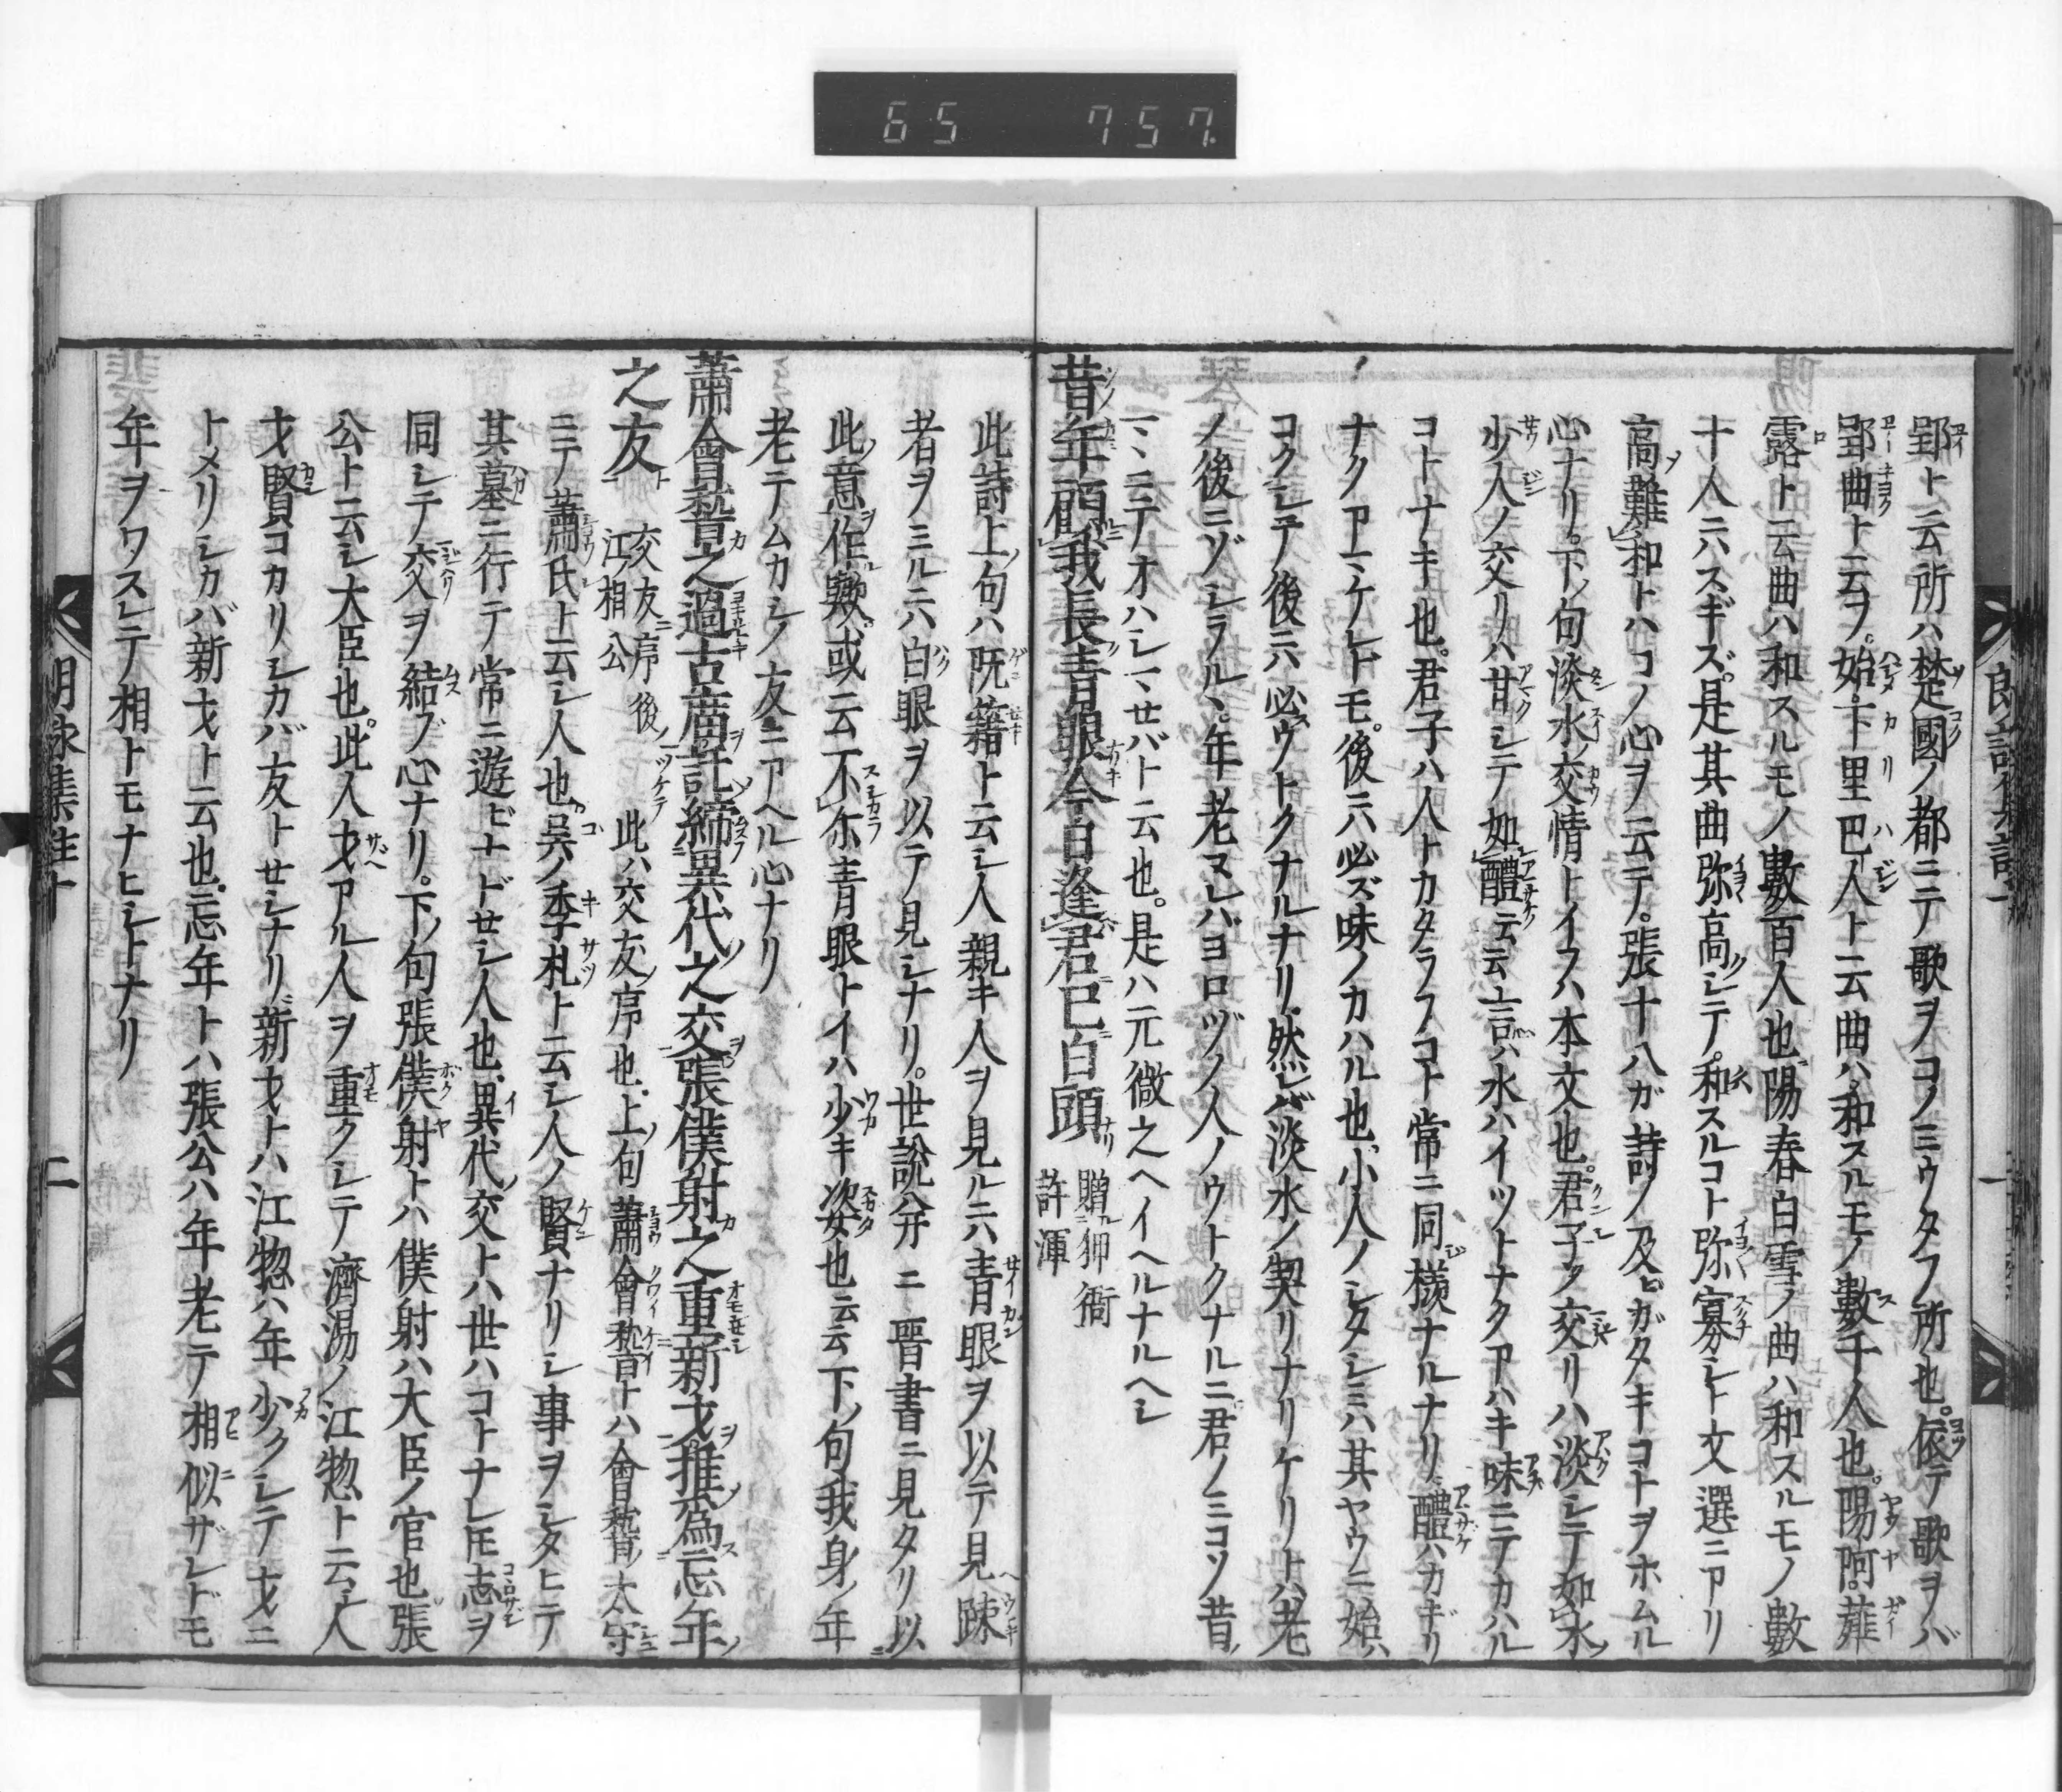 65 757.
郢ト云所ハ楚國ノ都ニテ歌ヲコノミウタフ所也。依テ歌ヲバ
郢曲ト云ヲ。始。下里巴人ト云曲ハ。和スルモノ數千人也。陽阿。薤
露ト云曲ハ和スルモノ數百人也。陽春白雪ノ曲ハ和スルモノ數
十人ニハスギズ。是其曲弥高クシテ。和スルコト弥寡シト文選ニアリ
高難和トハコノ心ヲ云テ。張十八ガ詩ノ及ビガタキコトヲホムル
心ナリ。下ノ句淡水ノ交情トイフハ本文也。君子ノ交リハ淡シテ如水ノ
少人ノ交リハ甘シテ如醴云云言ハ水ハイツトナクアハキ味ニテカハル
コトナキ也。君子ハ人トカタラフコト常ニ同ジ様ナルナリ。醴ハカギリ
ナクアマケレドモ。後ニハ必ズ味ノカハル也。小人ノシタシミハ其ヤウニ始ハ
コクシテ後ニハ必ウトクナルナリ。然レバ淡水ノ契リナリケリトハ老
ノ後ニゾシラルヽ。年老ヌレバヨロヅノ人ノウトクナルニ。君ノミコソ昔ノ
マヽニテオハシマセバト云也。是ハ元微之ヘイヘルナルヘシ
昔年顧我長青眼今日逢君已白頭 贈㹨衙
許渾
此詩上ノ句ハ阮籍ト云シ人親キ人ヲ見ルニハ青眼ヲ以テ見疎
者ヲミルニハ白眼ヲ以テ見シナリ。世說并ニ晋書ニ見タリ以
此ノ意ヲ作ル歟。或云不尓青眼トイハ少キ姿也云云下ノ句我身ノ年
老テムカシノ友ニアヘル心ナリ
蕭會稽之過古廟託締異代之交張僕射之重新才推為忘年
之友 交友序後 江相公 此ハ交友ノ序也。上ノ句蕭會稽トハ會稽ノ太守
ニテ蕭氏ト云シ人也。呉ノ季札ト云シ人ノ賢ナリシ事ヲシタヒテ
其墓ニ行テ常ニ遊ビナドセシ人也。異代ノ交トハ世ハコトナレ𪜈志ヲ
同シテ交ヲ結ブ心ナリ。下ノ句張僕射トハ僕射ハ大臣ノ官也張
公ト云シ大臣也。此人才アル人ヲ重クシテ濟陽ノ江惣ト云人
才賢コカリシカバ友トセシナリ。新才トハ江惣ハ年少クシテ才ニ
トメリシカバ新才ト云也。忘年トハ張公ハ年老テ相似ザレドモ
年ヲワスレテ相トモナヒシトナリ
二